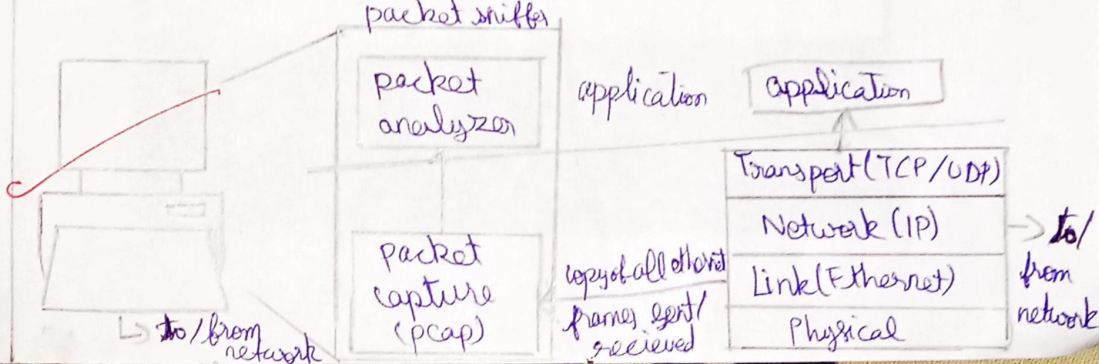 packet sniffer
packet
analyzer
application
application
Transport (TCP/UDP)
Network (IP)
Link (Ethernet)
Physical
to/
from
network
packet
capture
(pcap)
copy of all ethernet
frames sent/
recieved
to/from
network